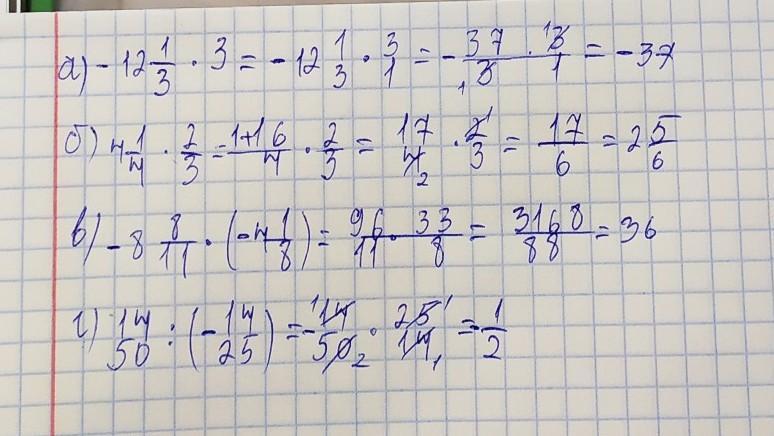 а) - 12 1/3 · 3 = - 12 1/3 · 3/1 = - 37/3 · 3/1 = - 37
б) 4 1/4 · 2/3 = 1+16/4 · 2/3 = 17/4 · 2/3 = 17/6 = 2 5/6
в) - 8 8/11 · (- 4 1/8) = 96/11 · 33/8 = 3168/88 = 36
г) 14/50 : (- 14/25) = - 14/50 · 25/14 = - 1/2